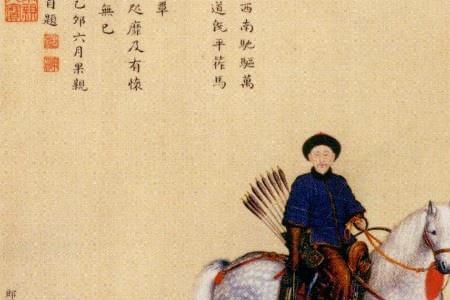 西南馳驅萬
道既平馬
羣
靡及有懷
無已
乙卯六月果親
自題
郎